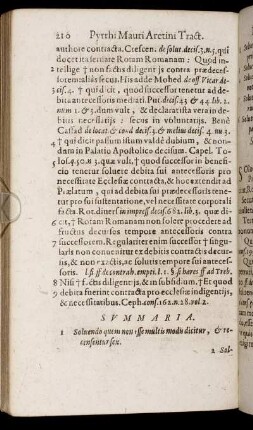 210 Pyrrhi Mauri Aretini Tract.
authore contracta. Crescen. de solut. decis. 3. n. 3. qui
docet ita sensisse Rotam Romanam: Quod in-
tellige † non factis diligentijs contra prædeces-
soremaliàs secus. His adde Mohed de off. Vicar. de-
cis. 4. † quid dicit, quod successor tenetur ad de-
bita antecessoris mediati. Put. decis. 23. & 44. lib. 2.
num 1. & 3. dum vult, & declarat ista vera in de-
bitis necessarijs: secus in voluntarijs. Bene
Cassad de locat. & co-d decis. 5. & melius decis. 4. nu 3.
† qui dicit passim istum valde dubium, & non-
dum in Palatio Apostolico decisum. Capel. To-
los. 450. n. 3. quæ vult, † quod successor in benefi-
cio tenetur soluere debita sui antecessoris pro
necessitate Ecclesiæ contracta, & hoc attendit ad
Prælatum, qui ad debita sui prædecessoris tene-
tur pro sui sustentatione, vel necessitate corporali
facta. Rot. diuers. in impress. decis. 682. lib. 3. quæ di-
cit, † Rotam Romanam non solere procedere ad
fructus decursos tempore antecessoris contra
successorem. Regulariter enim successor † singu-
laris non conuenitur ex debitis contractis decur-
sis, & non exactis, ac solutis tempore sui anteces-
soris. l. si ff. de contrah. empt. l. 1. § si hæres ff ad Treb.
8 Nisi † factis diligentijs, & in subsidium. † Et quod
debita fuerint contracta pro ecclesiæ indigentijs,
& necessitatibus. Ceph. cons. 162. n. 28. vol. 2.
SVMMARIA.
1 Soluendo quem non esse multis modis dicitur, & re-
censentur sex.
2 Sol-